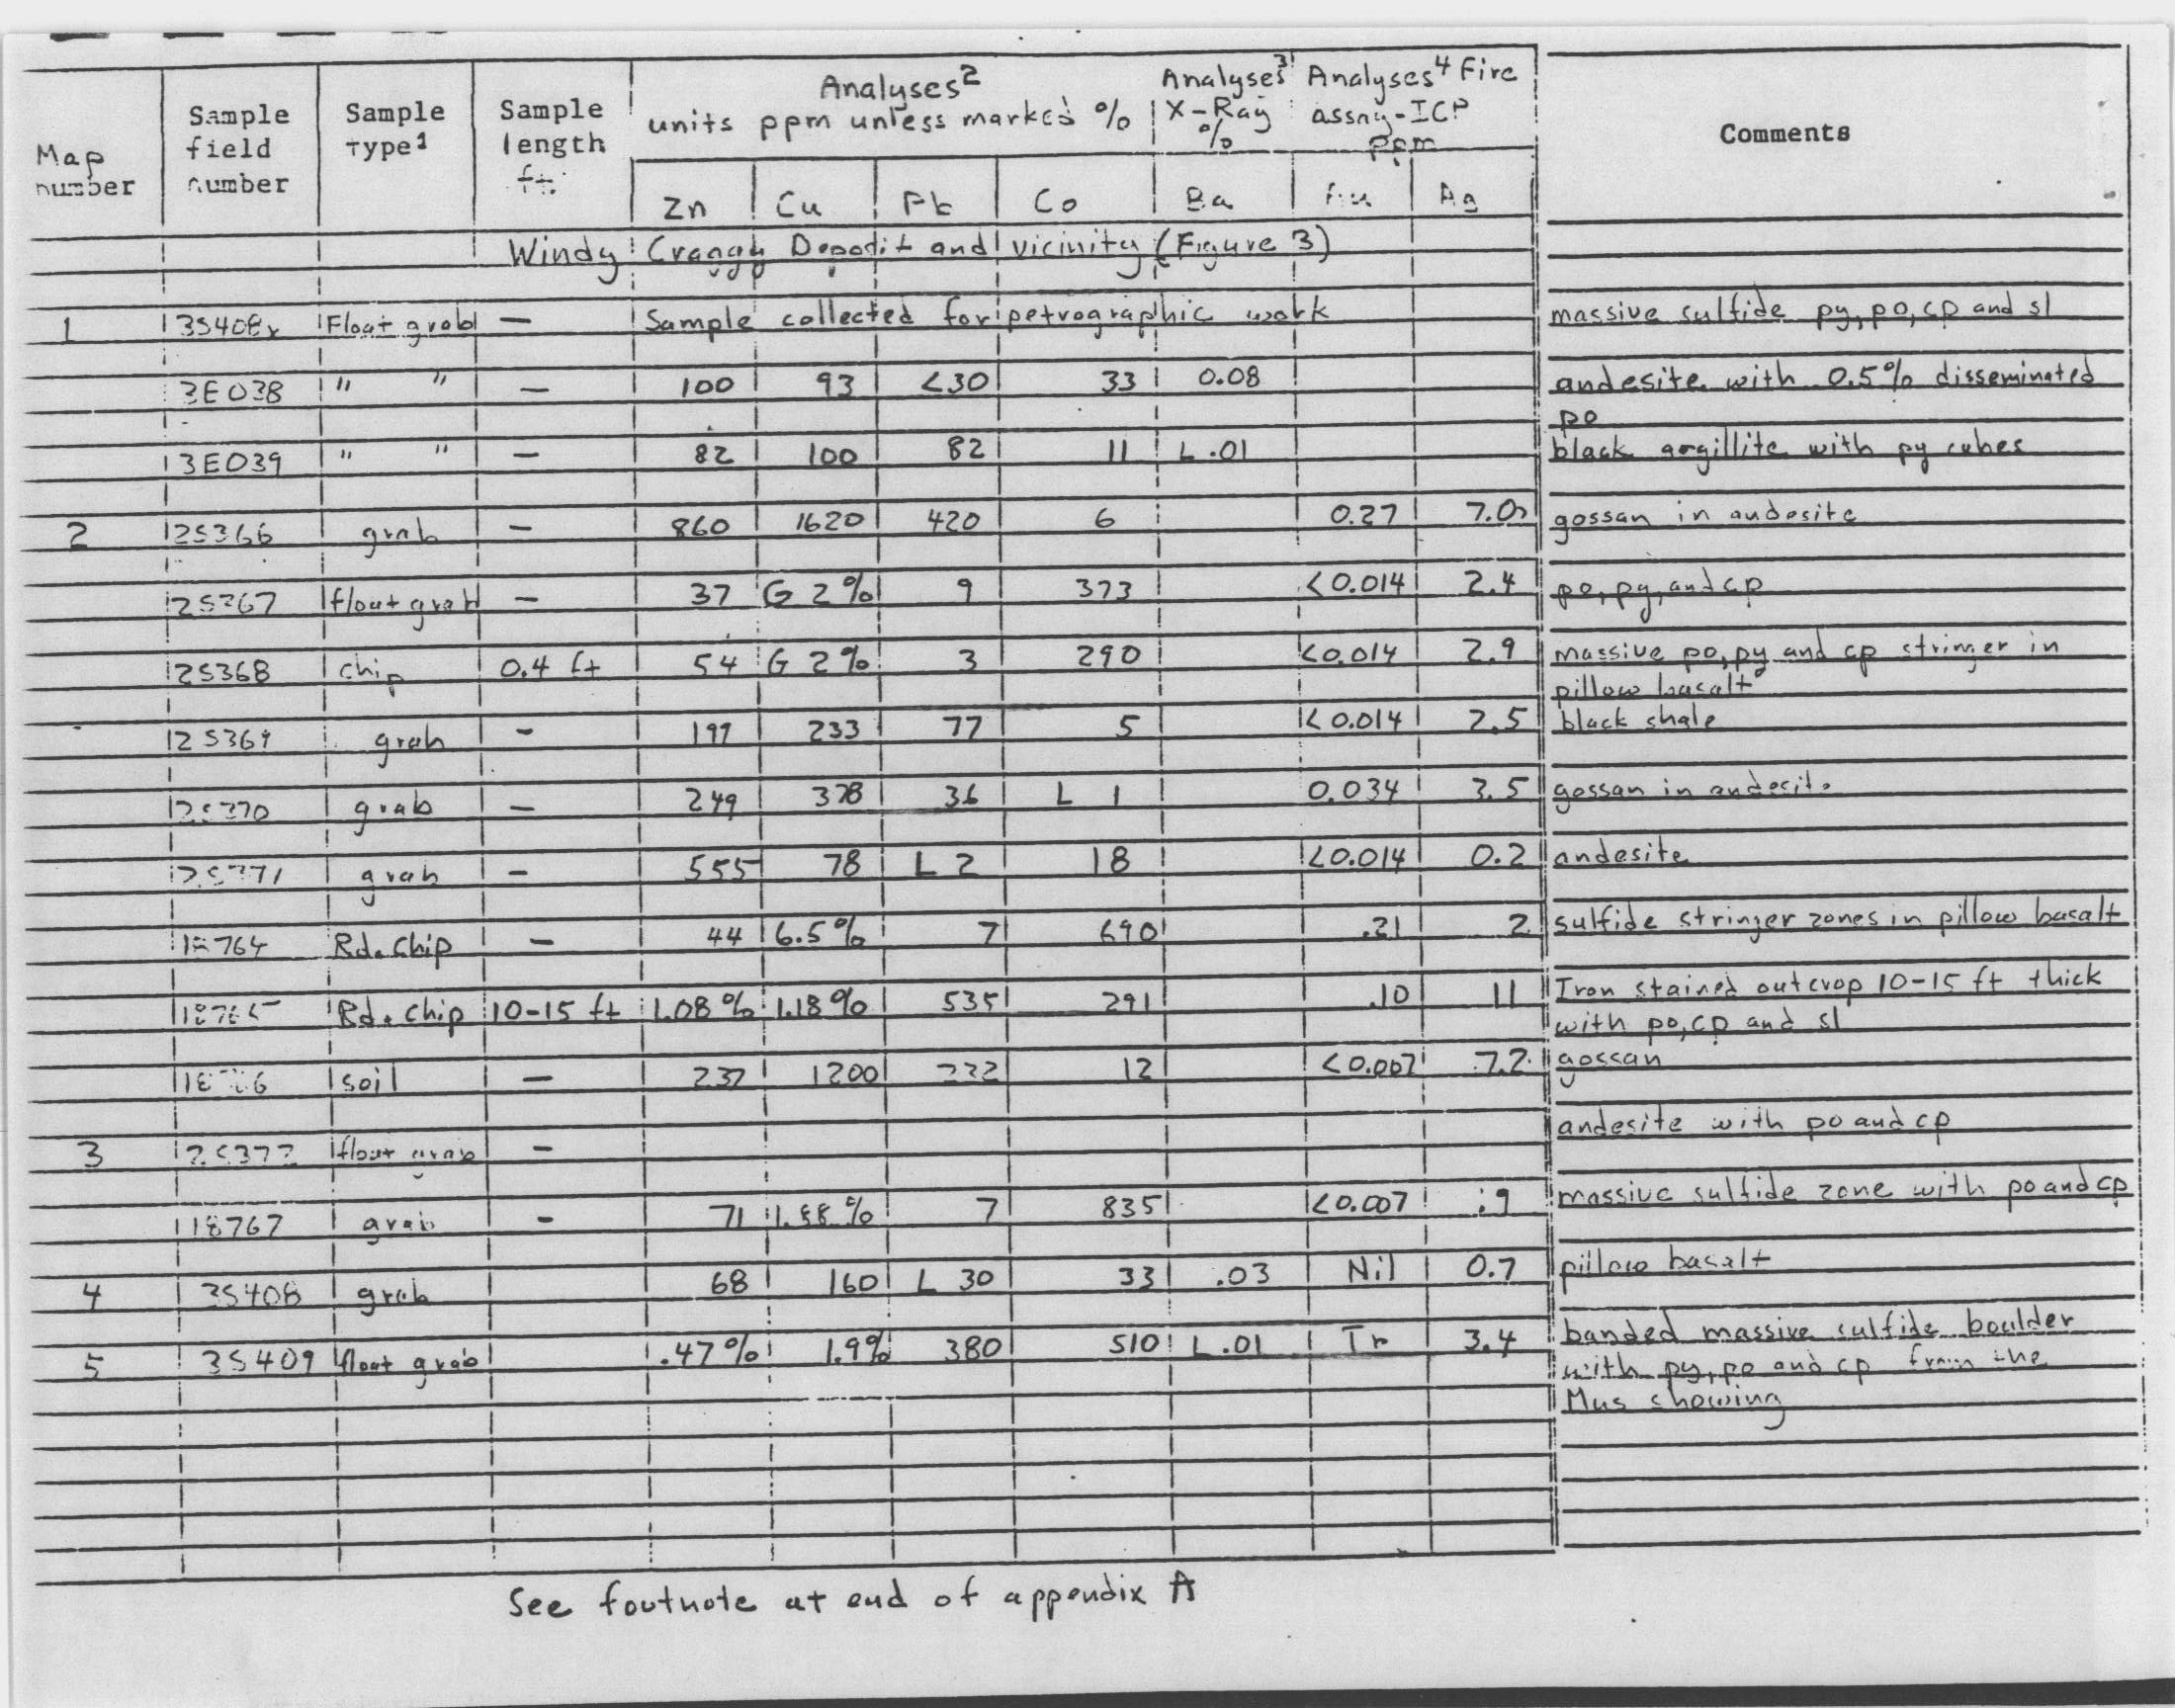 Analyses2 Analyses3 Analyses4 Fire
units ppm unless marked % X-Ray assay-ICP
% ppm
Map number Sample field number Sample Type1 Sample length ft. Zn Cu Pb Co Ba Au Ag Comments
Windy Craggy Deposit and vicinity (Figure 3)
1 3S408x Float grab — Sample collected for petrographic work massive sulfide py, po, cp and sl
3E038 " " — 100 93 <30 33 0.08 andesite with 0.5% disseminated
po
3E039 " " — 82 100 82 11 L .01 black argillite with py cubes
2 2S366 grab — 860 1620 420 6 0.27 7.0 gossan in andesite
2S367 float grab — 37 G 2% 9 373 <0.014 2.4 po, py, and cp
2S368 chip 0.4 ft 54 G 2% 3 290 <0.014 2.9 massive po, py and cp stringer in
pillow basalt
2S369 grab — 233 77 5 <0.014 2.5 black shale
2S370 grab — 249 378 36 L 1 0.034 3.5 gossan in andesite
2S371 grab — 555 78 L 2 18 <0.014 0.2 andesite
18764 Rd. chip — 44 6.5% 7 690 .21 2 sulfide stringer zones in pillow basalt
18765 Rd. chip 10-15 ft 1.08% 1.18% 535 291 .10 11 Iron stained outcrop 10-15 ft thick
with po, cp and sl
soil — 237 1200 12 <0.007 7.2 gossan
3 2S372 float grab — andesite with po and cp
18767 grab - 71 1.88% 7 835 <0.007 .9 massive sulfide zone with po and cp
4 3S408 grab 68 160 L 30 33 .03 Nil 0.7 pillow basalt
5 3S409 float grab .47% 1.9% 380 510 L .01 Tr 3.4 banded massive sulfide boulder
with py, po and cp from the
Mus showing
See footnote at end of appendix A